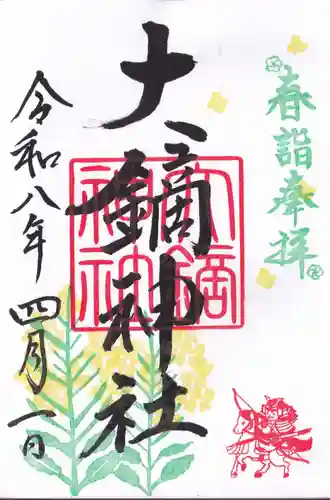 春詣奉拝
大鏑神社
大鏑神社
令和八年四月一日